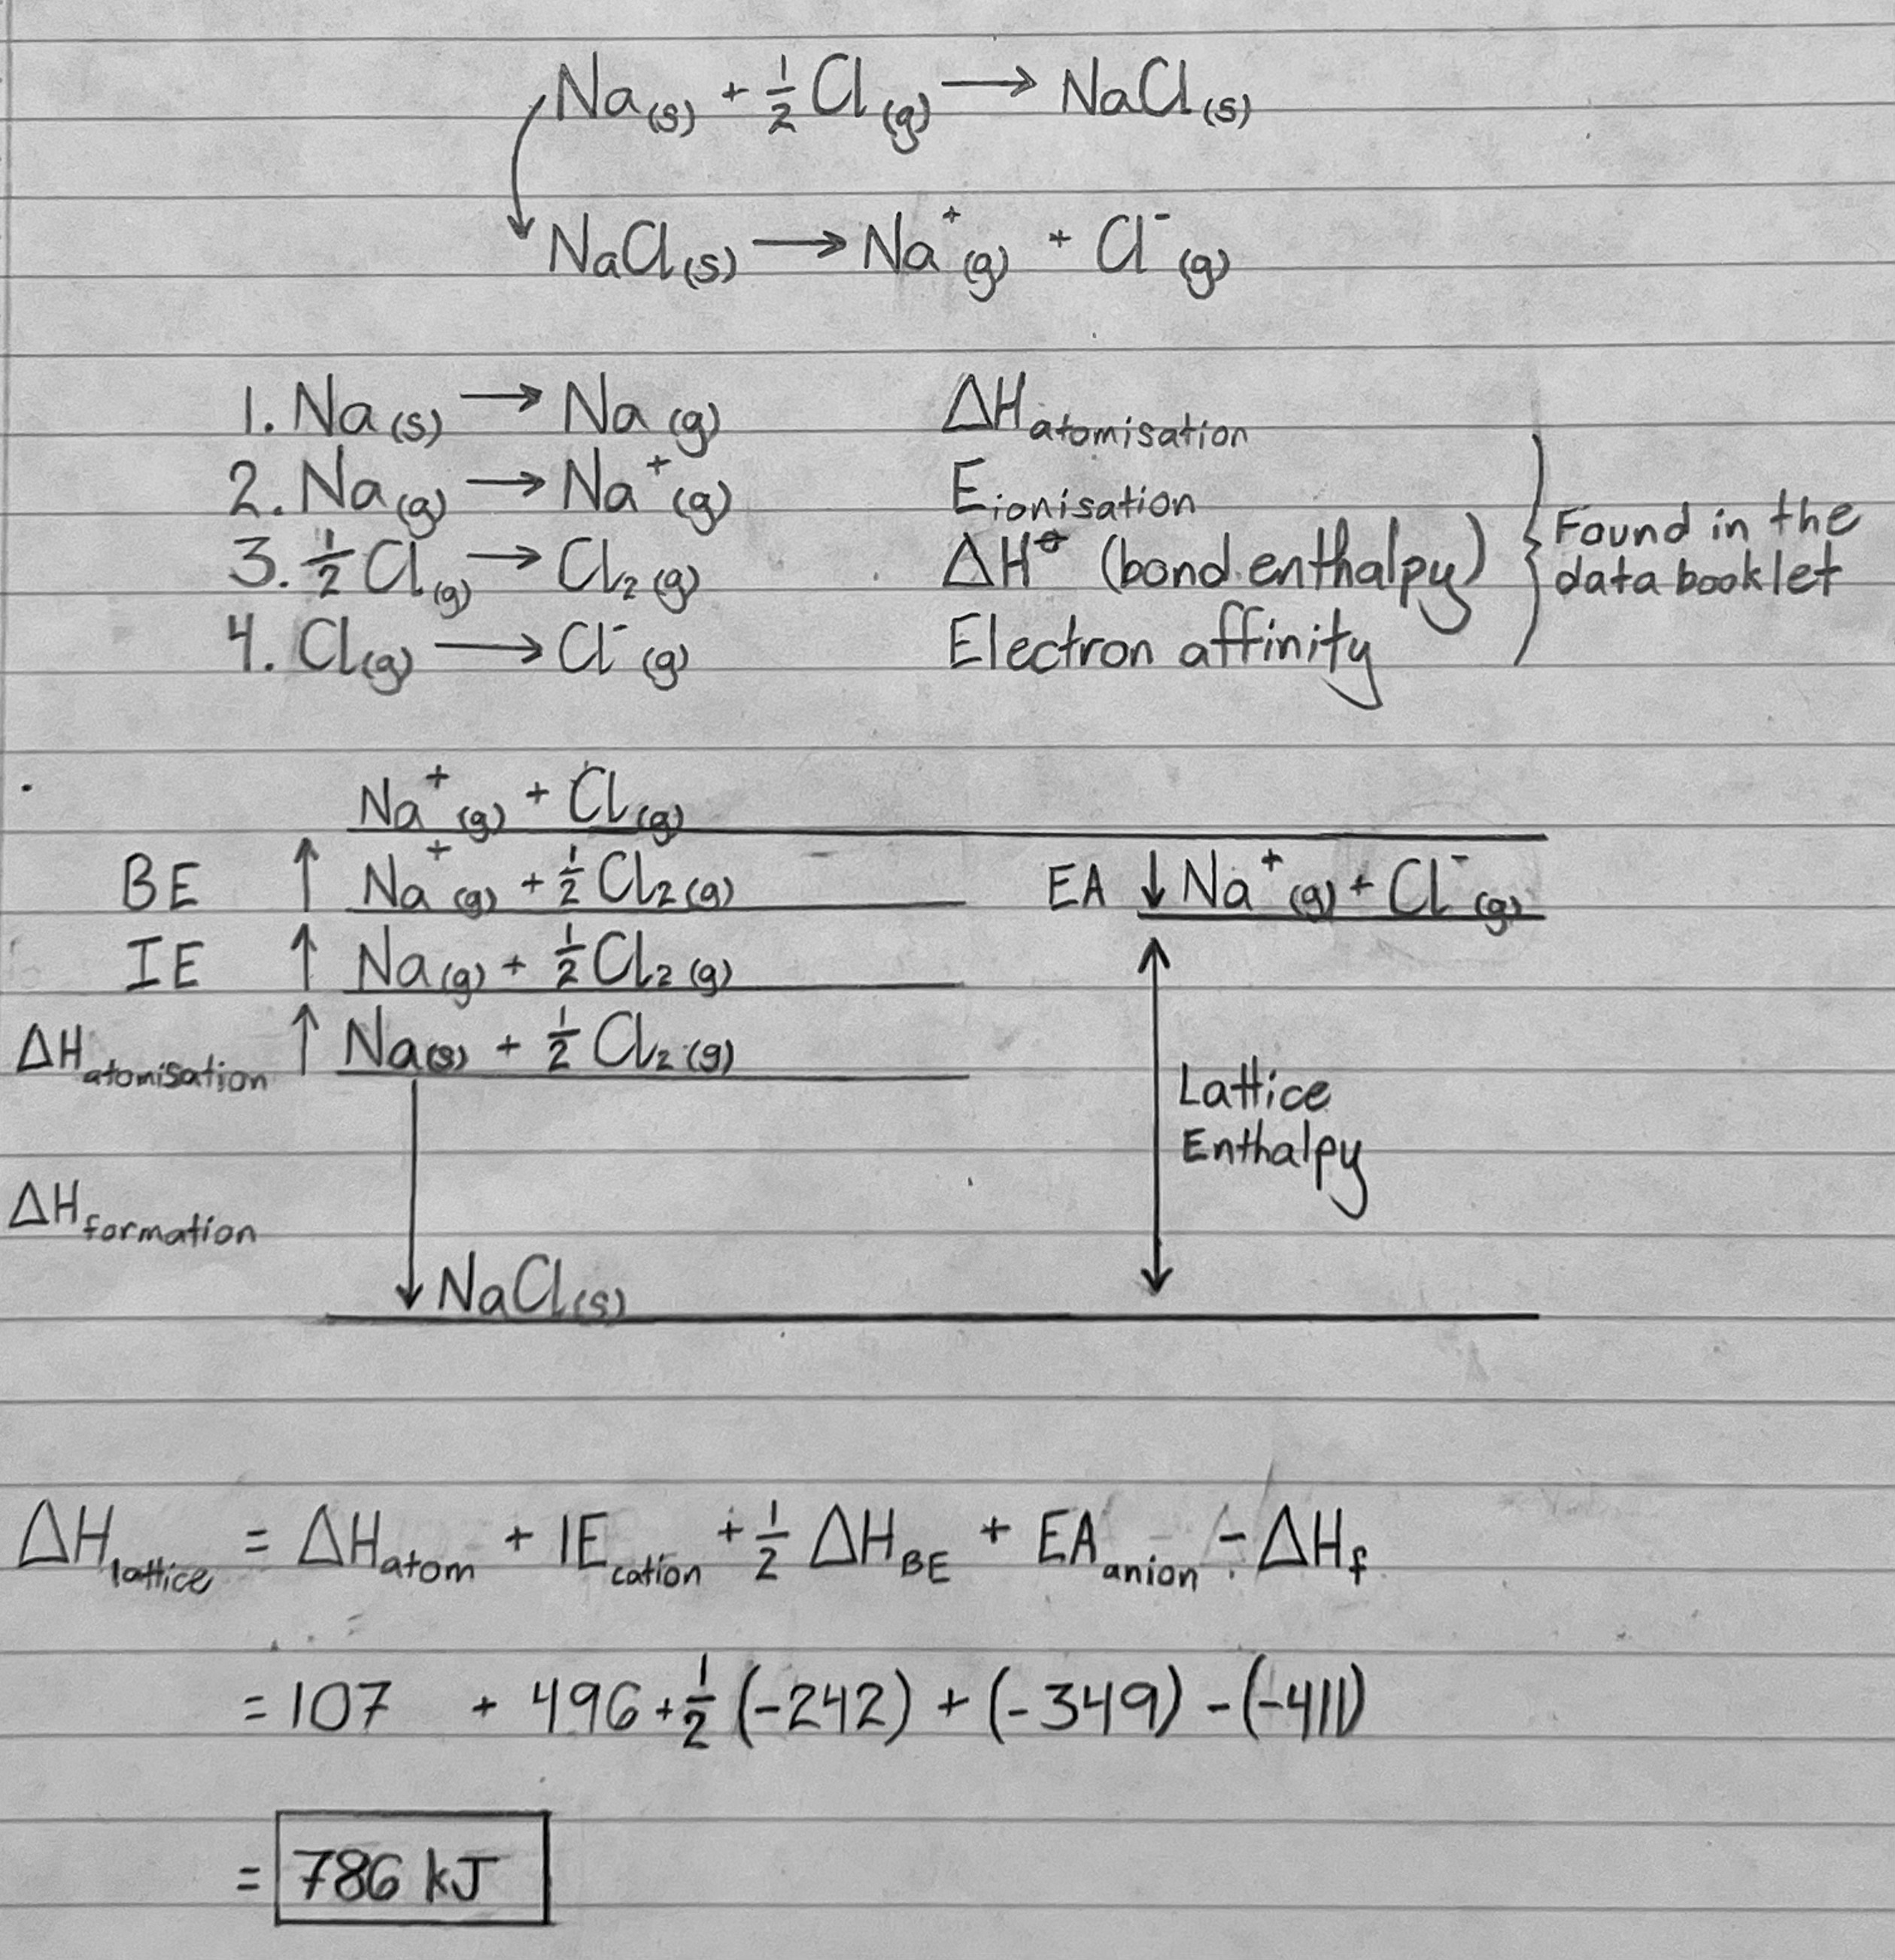 Na(s) + 1/2 Cl(g) → NaCl(s)
NaCl(s) → Na⁺(g) + Cl⁻(g)
1. Na(s) → Na(g) ΔH atomisation
2. Na(g) → Na⁺(g) E ionisation
3. 1/2 Cl(g) → Cl₂(g) ΔH⦵ (bond enthalpy)
4. Cl(g) → Cl⁻(g) Electron affinity
} Found in the
data booklet
Na⁺(g) + Cl(g)
BE ↑ Na⁺(g) + 1/2 Cl₂(g) EA ↓ Na⁺(g) + Cl⁻(g)
IE ↑ Na(g) + 1/2 Cl₂(g)
ΔH atomisation ↑ Na(s) + 1/2 Cl₂(g)
Lattice
Enthalpy
ΔH formation
NaCl(s)
ΔH lattice = ΔH atom + IE cation + 1/2 ΔH BE + EA anion - ΔH f
= 107 + 496 + 1/2 (-242) + (-349) - (-411)
= 786 kJ